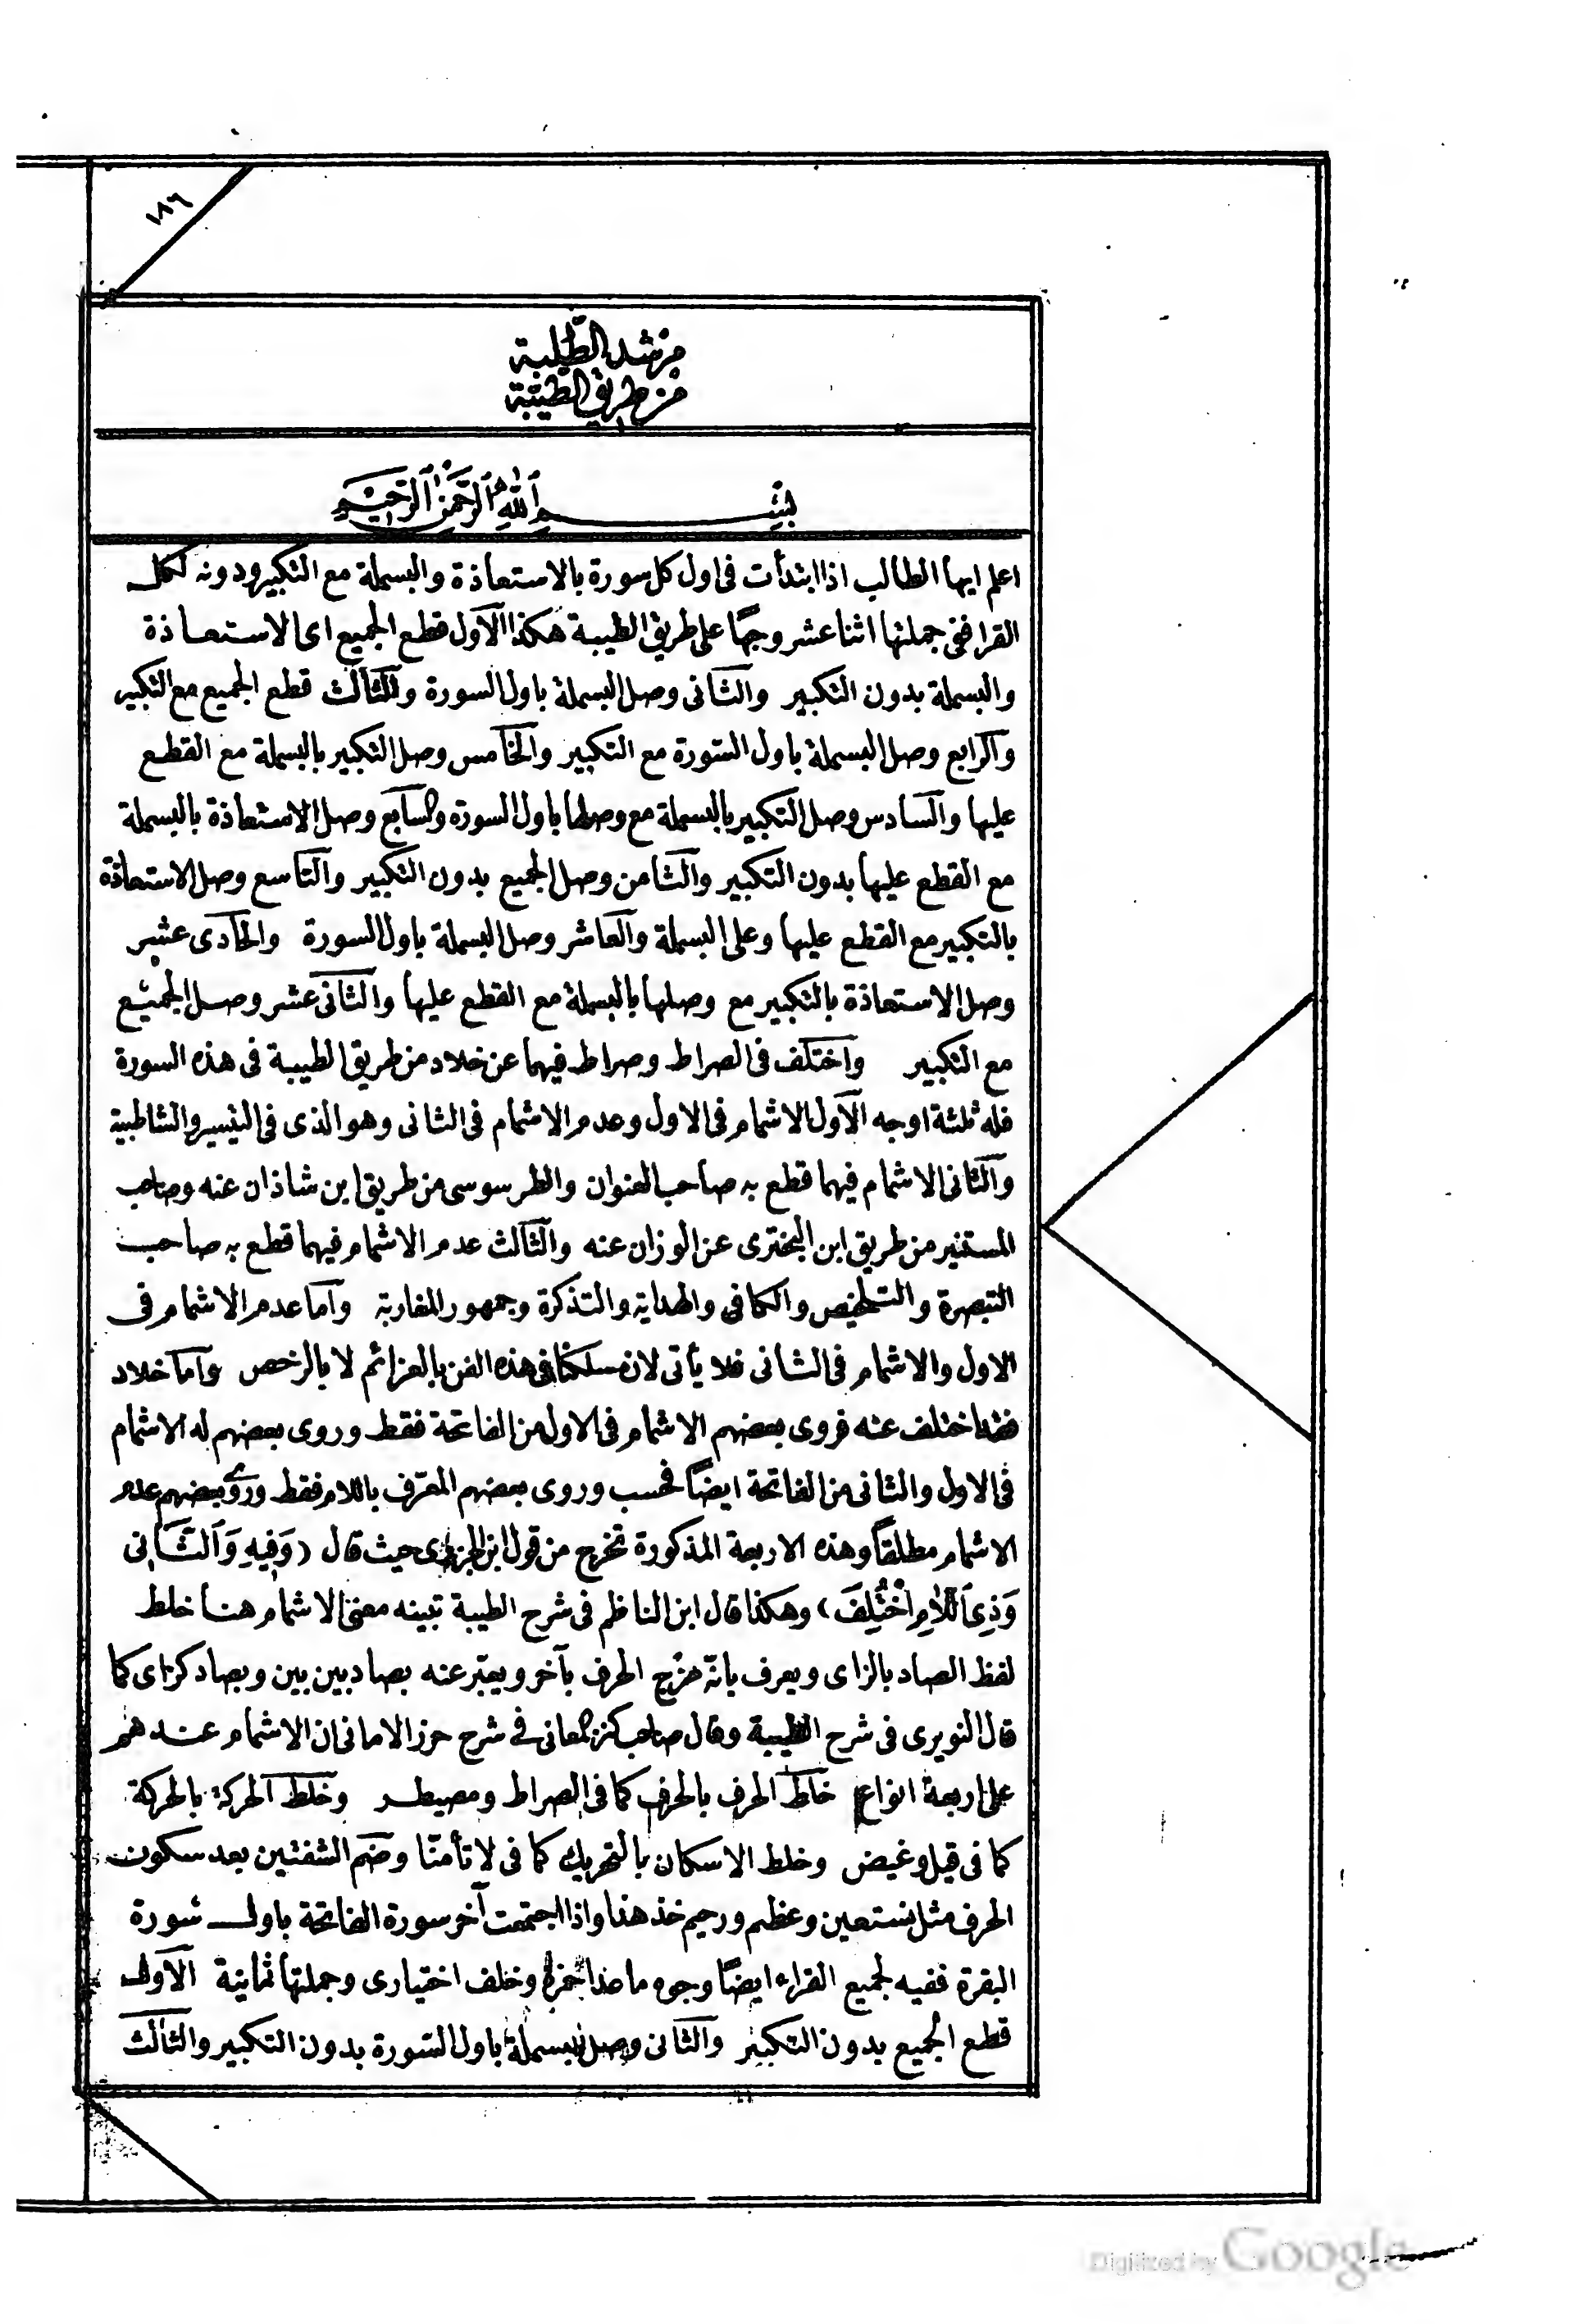 ١٨٦
مرشد الطلبة
من طريق الطيبة
بسم الله الرحمن الرحيم
اعلم ايها الطالب اذا ابتدأت فى اول كل سورة بالاستعاذة والبسملة مع التكبير ودونه لكل
القرا ففى جملتها اثنا عشر وجهًا على طريق الطيبة هكذا الآول قطع الجميع اى الاستعاذة
والبسملة بدون التكبير والثانى وصل البسملة باول السورة والثالث قطع الجميع مع التكبير
والرابع وصل البسملة باول السّورة مع التكبير والخامس وصل التكبير بالبسملة مع القطع
عليها والسادس وصل التكبير بالبسملة مع وصلها باول السورة والسابع وصل الاستعاذة بالبسملة
مع القطع عليها بدون التكبير والثامن وصل الجميع بدون التكبير والتاسع وصل الاستعاذة
بالتكبير مع القطع عليها وعلى البسملة والعاشر وصل البسملة باول السورة والحادى عشر
وصل الاستعاذة بالتكبير مع وصلها بالبسملة مع القطع عليها والثانى عشر وصل الجميع
مع التكبير واختلف فى الصراط وصراط فيهما عن خلاد من طريق الطيبة فى هذه السورة
فله ثلثة اوجه الآول الاشمام فى الاول وعدم الاشمام فى الثانى وهو الذى فى التيسير والشاطبية
والثانى الاشمام فيهما قطع به صاحب العنوان والطرسوسى من طريق ابن شاذان عنه وصاحب
المستنير من طريق ابن البخترى عن الوزان عنه والثالث عدم الاشمام فيهما قطع به صاحب
التبصرة والتلخيص والكافى والهداية والتذكرة وجمهور المغاربة وآما عدم الاشمام فى
الاول والاشمام فى الثانى فلا يأتى لان مسلكنا فى هذه الفن بالعزائم لا بالرخص وآما خلاد
فقد اختلف عنه فروى بعضهم الاشمام فى الاول من الفاتحة فقط وروى بعضهم له الاشمام
فى الاول والثانى من الفاتحة ايضًا فحسب وروى بعضهم المعّرف باللام فقط وروى بعضهم عدم
الاشمام مطلقاً وهذه الاربعة المذكورة تخرج من قول ابن الجزرى حيث قال (وَفِيهِ وَالثَّانِى
وَذِى اللَّامِ اخْتُلِفَ) وهكذا قال ابن الناظم فى شرح الطيبة تبينه معنى الاشمام هنا خلط
لفظ الصاد بالزاى ويعرف بانّه مزج الحرف بآخر ويعبّر عنه بصاد بين بين وبصاد كزاى كما
قال النويرى فى شرح الطيبة وقال صاحب كنز المعانى فى شرح حرز الامانى ان الاشمام عندهم
على اربعة انواع خلط الحرف بالحرف كما فى الصراط ومصيطر وخلط الحركة بالحركة
كما فى قيل وغيض وخلط الاسكان بالتحريك كما فى لا تأمنّا وضم الشفتين بعد سكون
الحرف مثل نستعين وعظيم ورحيم خذ هذا واذا اجتمعت آخر سورة الفاتحة باول سورة
البقرة ففيه لجميع القراء ايضًا وجوه ما عدا حمزة وخلف اختيارى وجملتها ثمانية الآول
قطع الجميع بدون التكبير والثانى وصل البسملة باول السّورة بدون التكبير والثالث
Digitized by Google